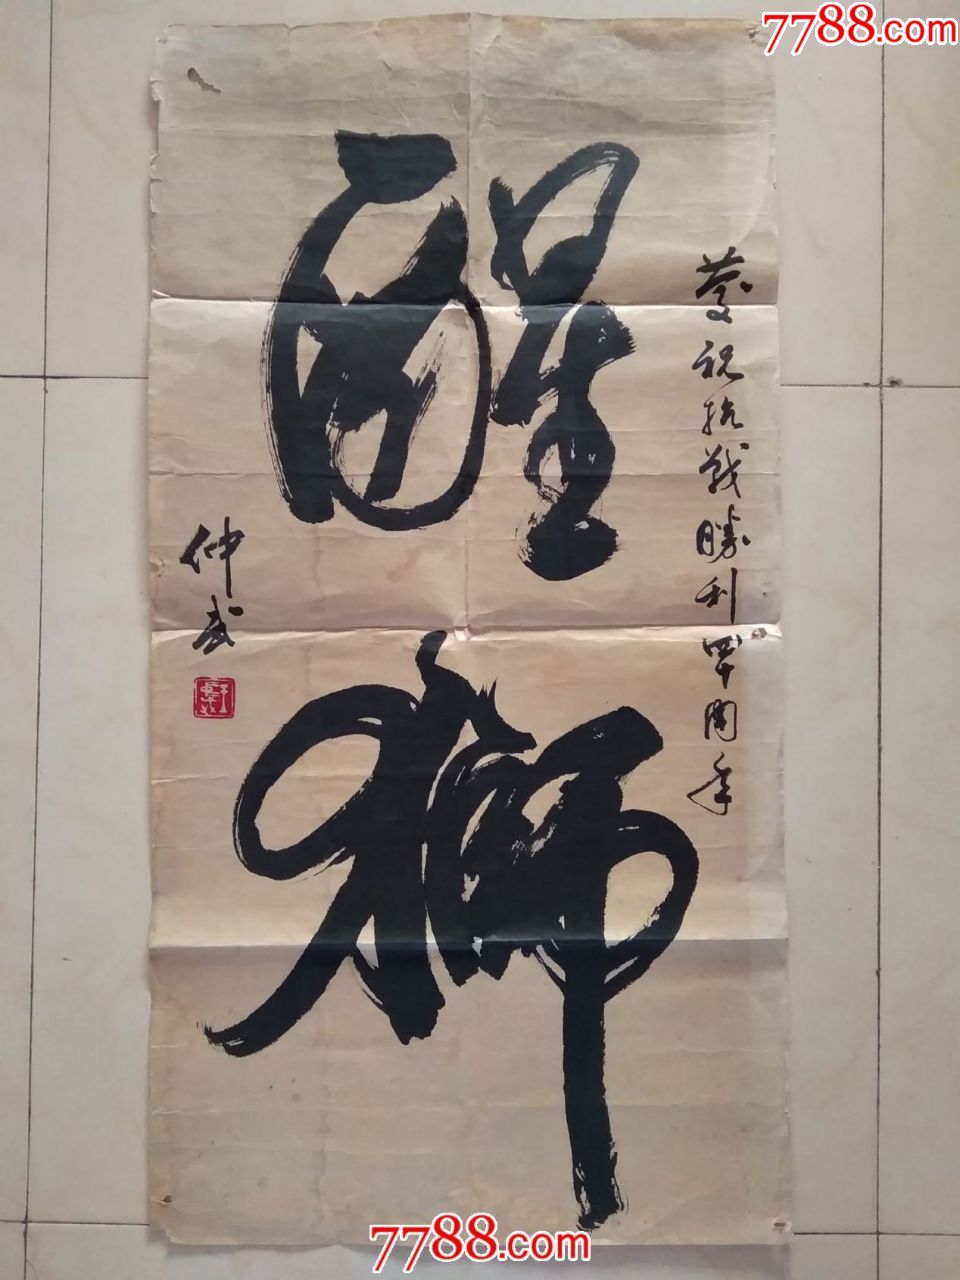 7788.com
醒獅
慶祝抗戰勝利四十周年
仲武
7788.com